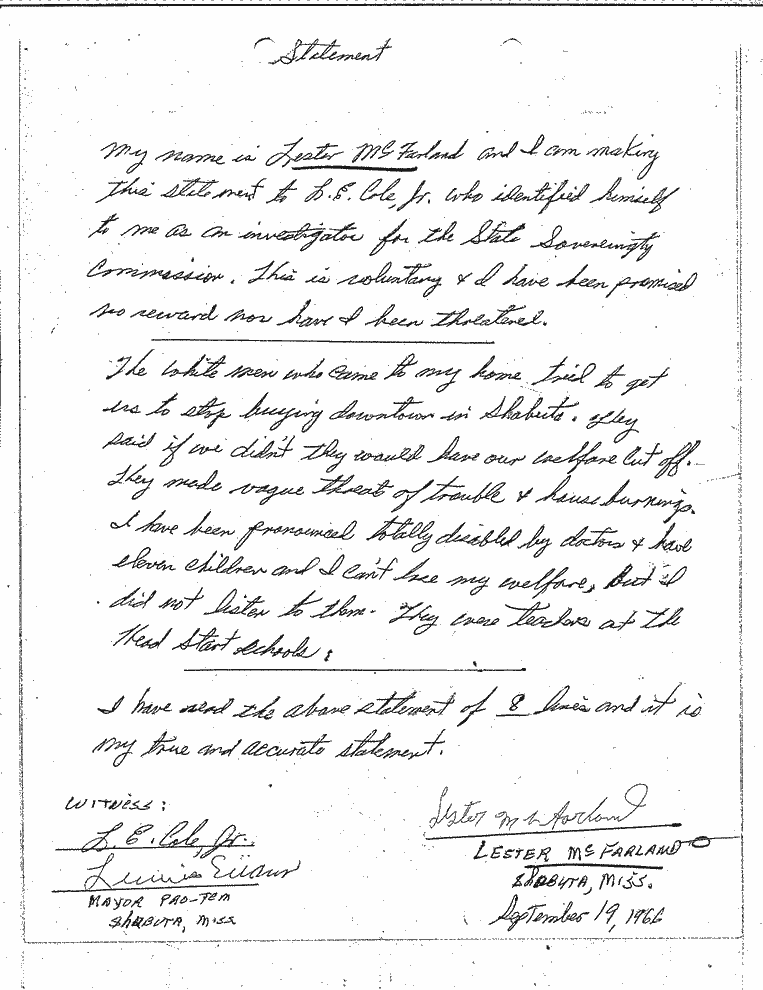 Statement
My name is Lester McFarland and I am making
this statement to L.E. Cole, Jr. who identified himself
to me as an investigator for the State Sovereingty
Commission. This is voluntary & I have been promised
no reward nor have I been threatered.
The white men who came to my home tried to get
us to stop buying downtown in Shabuta. They
said if we didn't they would have our welfare cut off.
They made vague threat of trouble & house burnings.
I have been pronounced totally disabled by doctors & have
eleven children and I can't lose my welfare, But I
did not listen to them. They were teachers at the
Head Start schools.
I have read the above statement of 8 lines and it is
my true and accurate statement.
WITNESS:
L. E. Cole, Jr.
MAYOR PRO-TEM
SHABUTA, MISS
Lester McFarland
LESTER McFARLAND
SHABUTA, MISS.
September 19, 1966